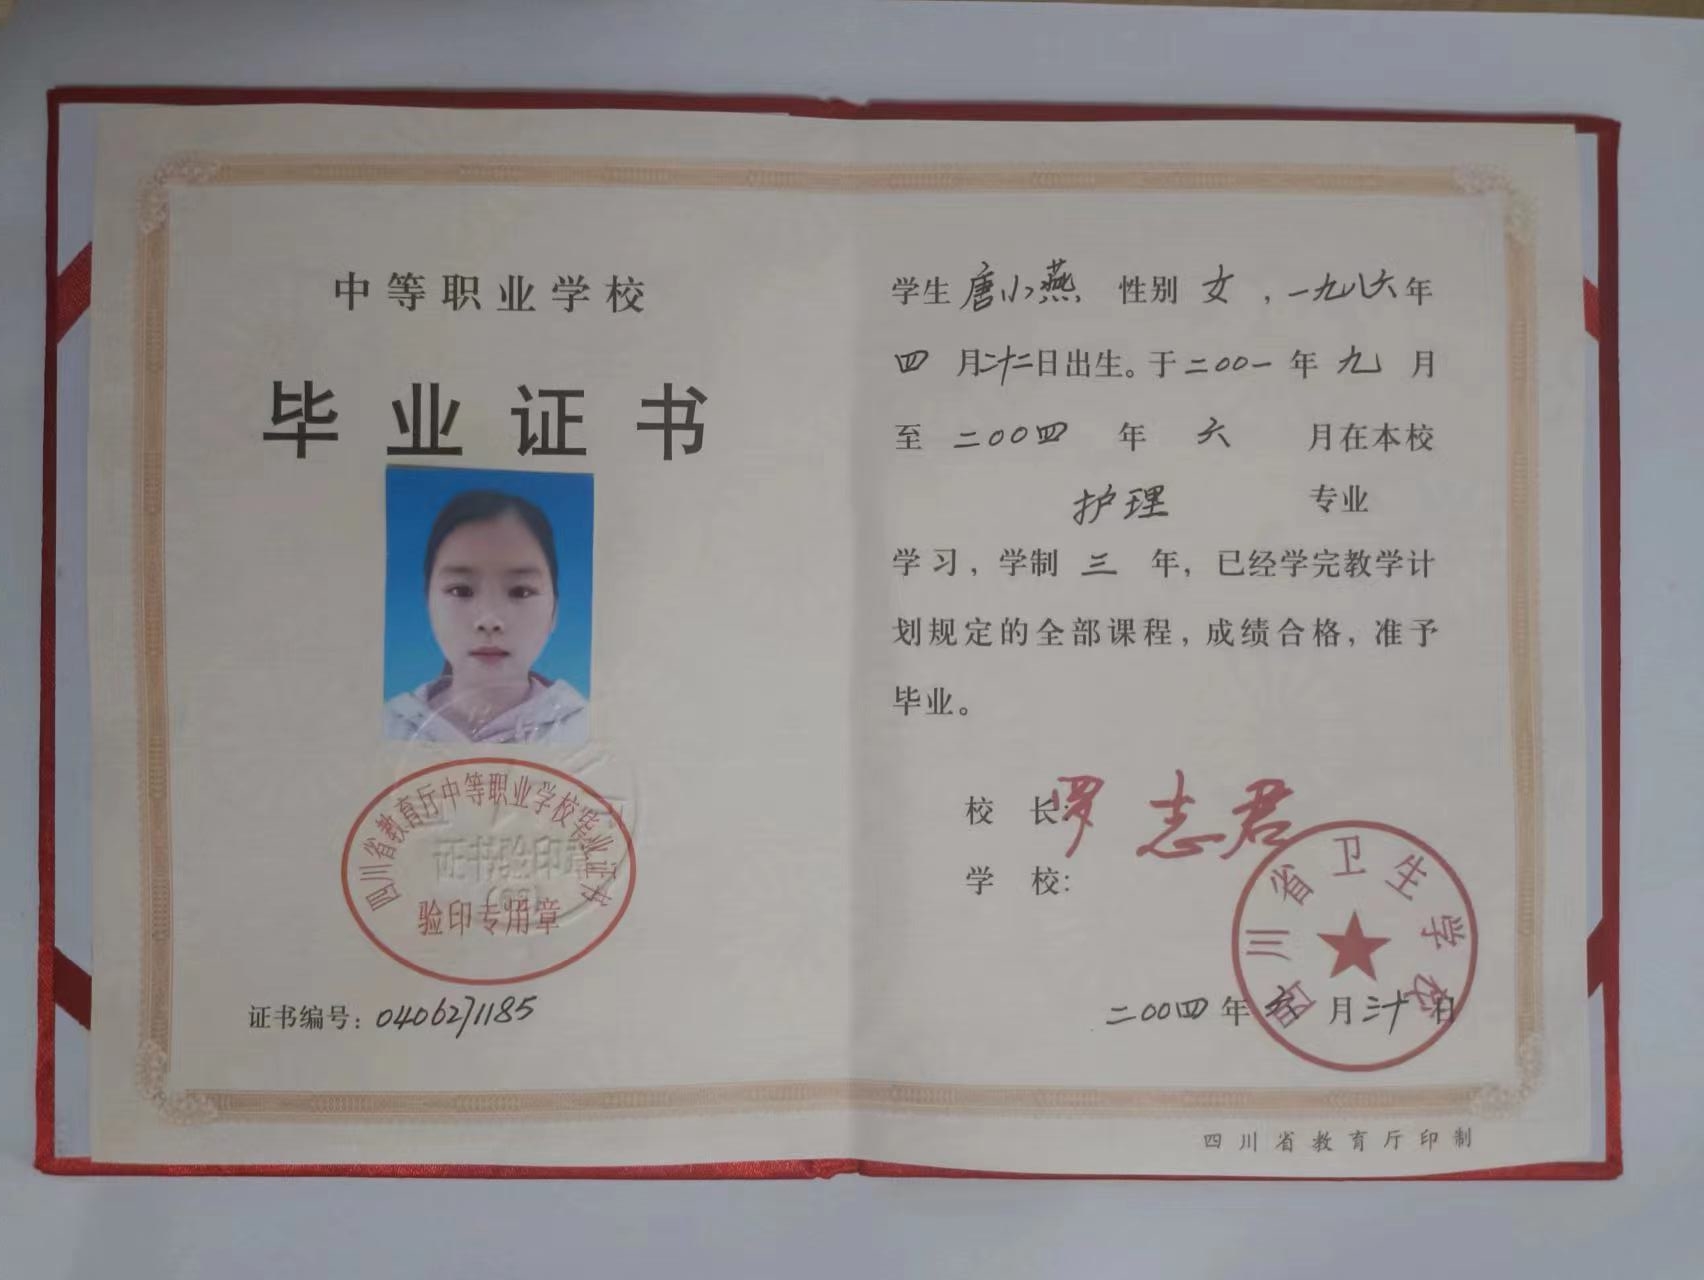 中等职业学校
毕业证书
四川省教育厅中等职业学校毕业证书
验印专用章
证书编号：0406271185
学生 唐小燕 性别 女，一九八六年
四 月二十二日出生。于二〇〇一年九月
至 二〇〇四 年 六 月在本校
护理 专业
学习，学制 三 年，已经学完教学计
划规定的全部课程，成绩合格，准予
毕业。
校 长：罗志君
学 校：
四川省卫生学校
二〇〇四年六月三十日
四川省教育厅印制